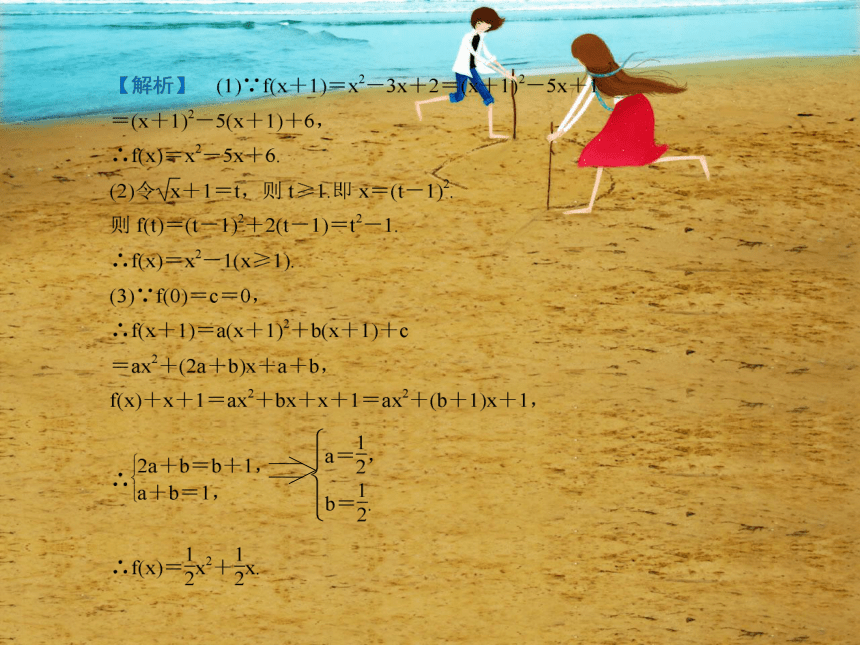 【解析】 (1)∵f(x+1)=x²-3x+2=(x+1)²-5x+1
=(x+1)²-5(x+1)+6,
∴f(x)=x²-5x+6.
(2)令√x+1=t,则 t≥1.即 x=(t-1)².
则 f(t)=(t-1)²+2(t-1)=t²-1.
∴f(x)=x²-1(x≥1).
(3)∵f(0)=c=0,
∴f(x+1)=a(x+1)²+b(x+1)+c
=ax²+(2a+b)x+a+b,
f(x)+x+1=ax²+bx+x+1=ax²+(b+1)x+1,
∴{2a+b=b+1, a+b=1, ⇒ {a=1/2, b=1/2.
∴f(x)=1/2x²+1/2x.